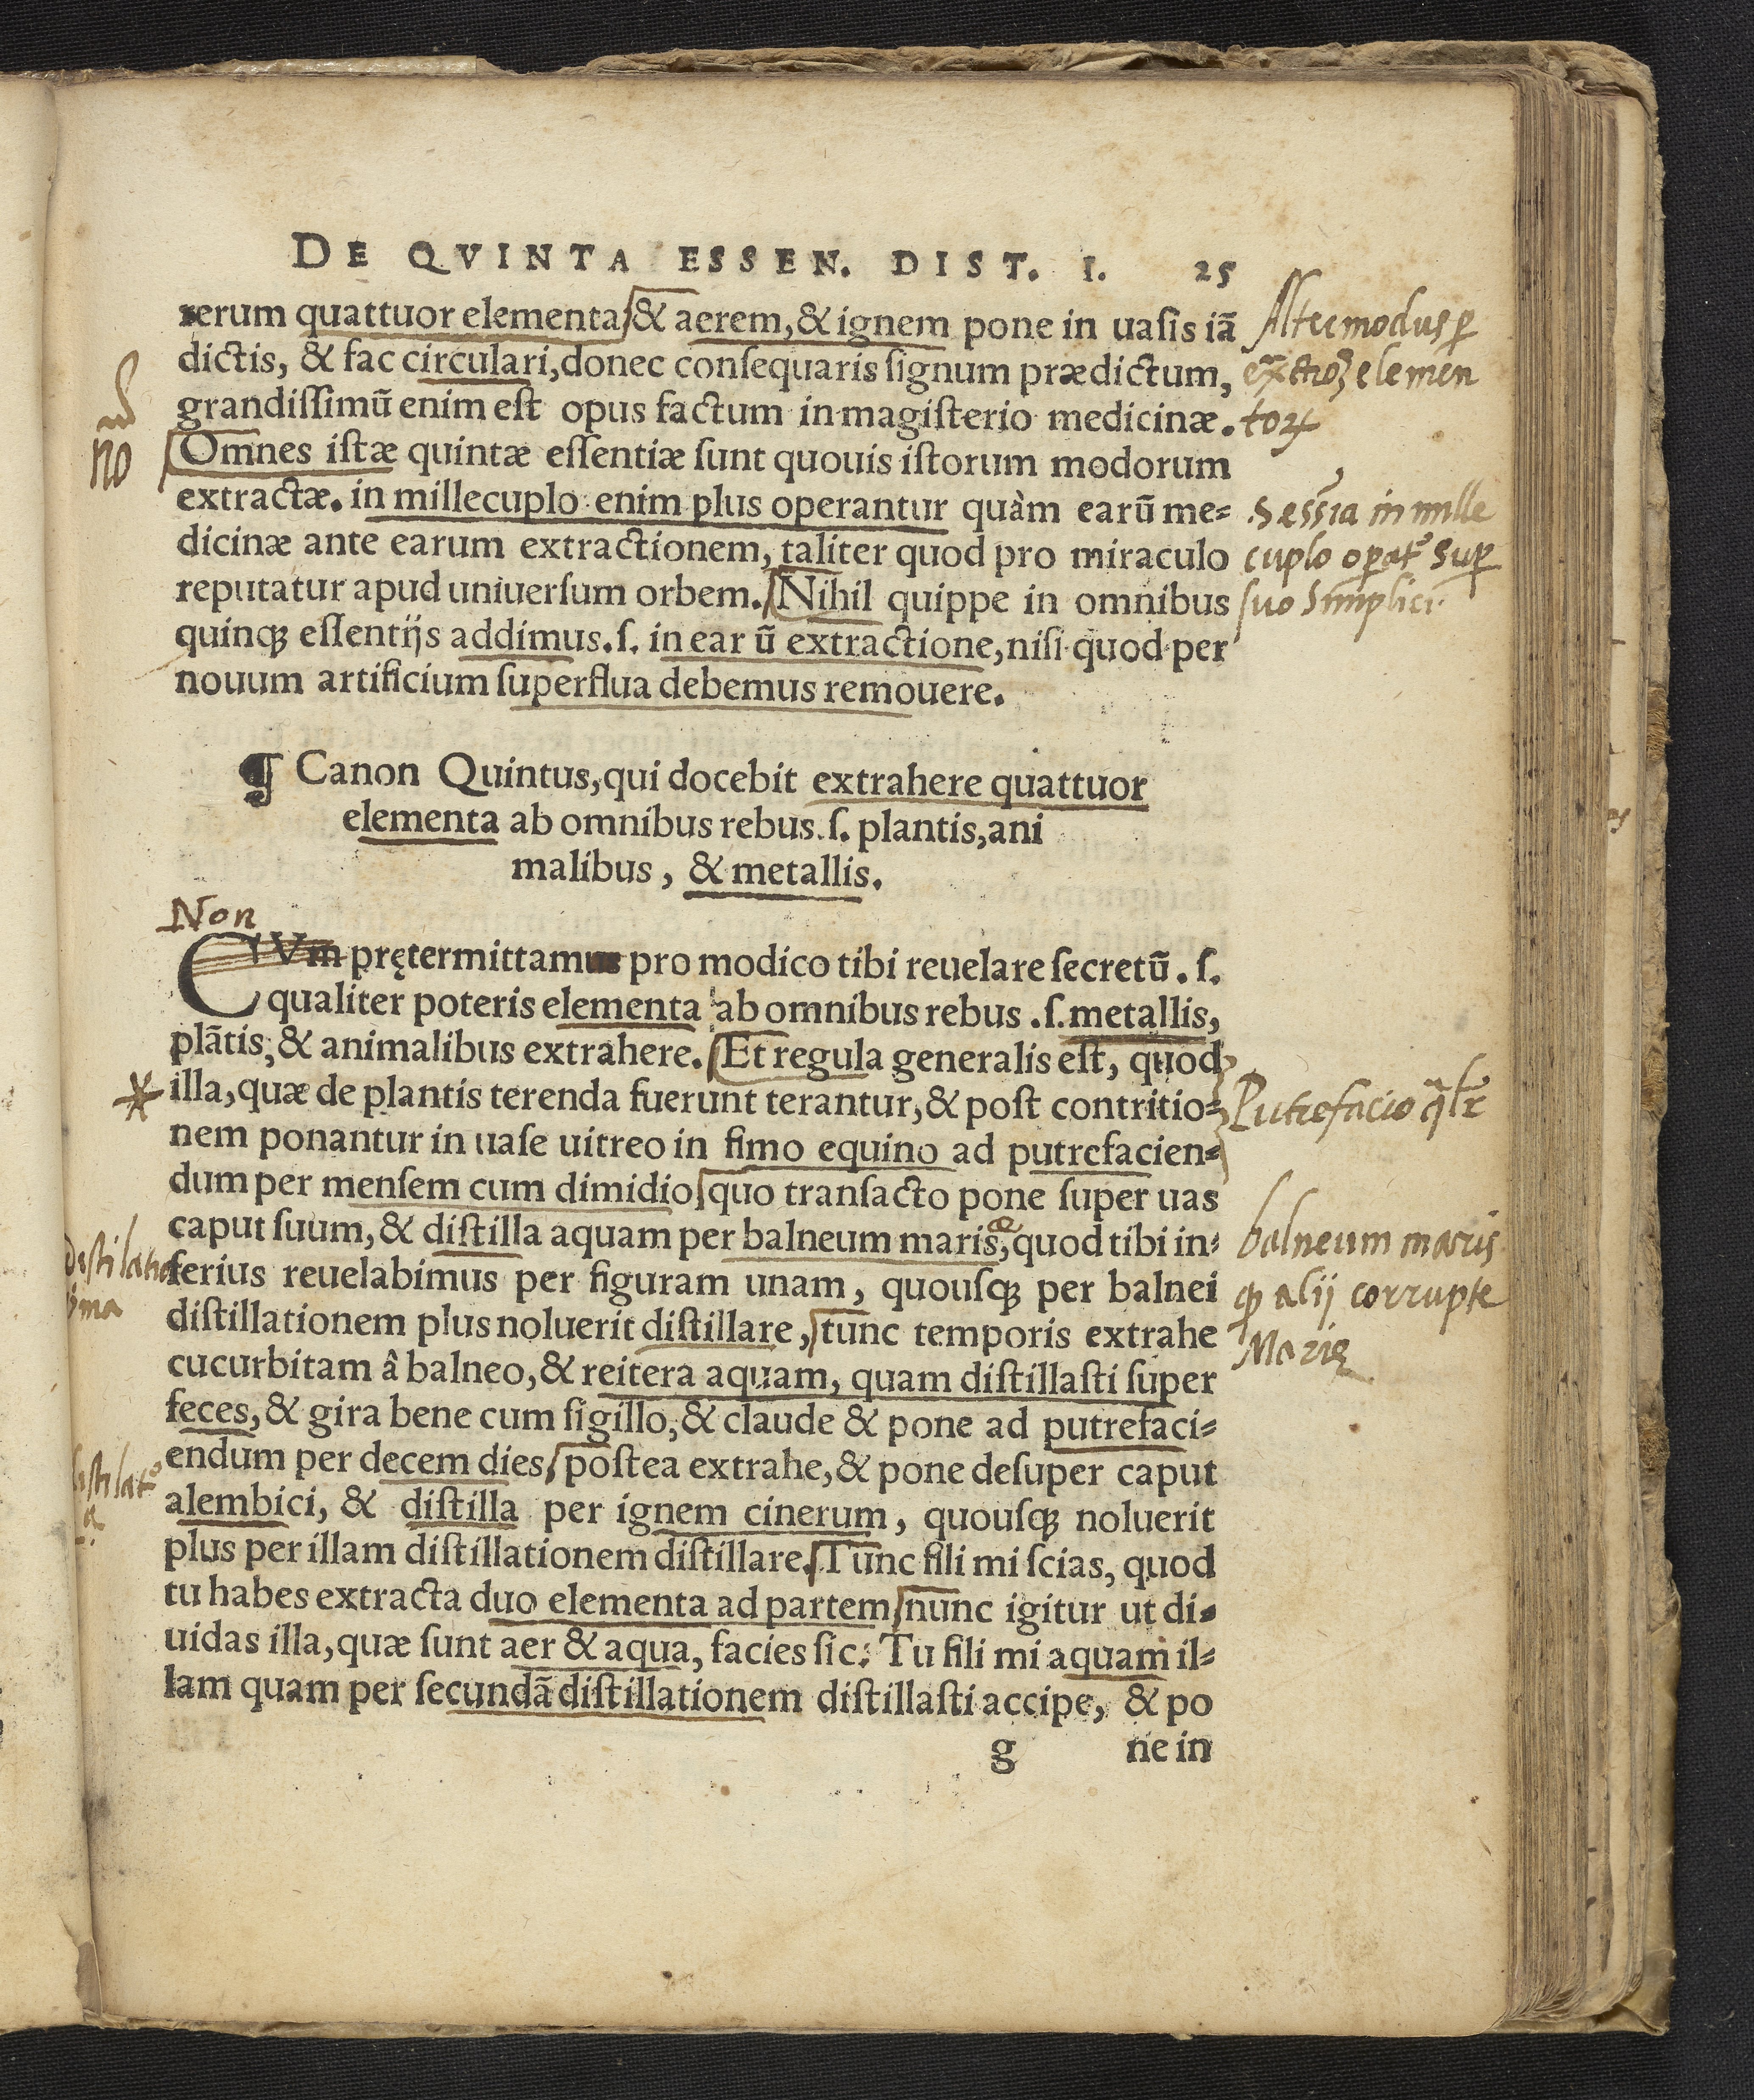 DE QVINTA ESSEN. DIST. I. 25
rerum quattuor elementa & aerem, & ignem pone in uaſis iā
dictis, & fac circulari, donec conſequaris ſignum prædictum,
grandiſſimū enim eſt opus factum in magiſterio medicinæ.
Omnes iſtæ quintæ eſſentiæ ſunt quouis iſtorum modorum
extractæ. in millecuplo enim plus operantur quàm earū me⸗
dicinæ ante earum extractionem, taliter quod pro miraculo
reputatur apud uniuerſum orbem. Nihil quippe in omnibus
quinqꝫ eſſentijs addimus. ſ. in ear ū extractione, niſi quod per
nouum artificium ſuperflua debemus remouere.
Alter modus ꝑ
elemen
toꝝ
no
5 eſſia in mille
cuplo operatᵉ suꝑ
suo simplici.
¶ Canon Quintus, qui docebit extrahere quattuor
elementa ab omnibus rebus. ſ. plantis, ani
malibus, & metallis.
Non
CVm prętermittamus pro modico tibi reuelare ſecretū. ſ.
qualiter poteris elementa ab omnibus rebus. ſ. metallis,
plātis, & animalibus extrahere. Et regula generalis eſt, quod
illa, quæ de plantis terenda fuerunt terantur, & poſt contritio⸗
nem ponantur in uaſe uitreo in fimo equino ad putrefacien⸗
dum per menſem cum dimidio quo tranſacto pone ſuper uas
caput ſuum, & diſtilla aquam per balneum maris, quod tibi in⸗
ferius reuelabimus per figuram unam, quouſqꝫ per balnei
diſtillationem plus noluerit diſtillare, tunc temporis extrahe
cucurbitam â balneo, & reitera aquam, quam diſtillaſti ſuper
feces, & gira bene cum ſigillo, & claude & pone ad putrefaci⸗
endum per decem dies poſtea extrahe, & pone deſuper caput
alembici, & diſtilla per ignem cinerum, quouſqꝫ noluerit
plus per illam diſtillationem diſtillare. Tunc fili mi ſcias, quod
tu habes extracta duo elementa ad partem nunc igitur ut di⸗
uidas illa, quæ ſunt aer & aqua, facies ſic: Tu fili mi aquam il⸗
lam quam per ſecundā diſtillationem diſtillaſti accipe, & po
g ne in
Putrefacio
balneum maris
alij corrupte
Marię
Destilatio
pͥma